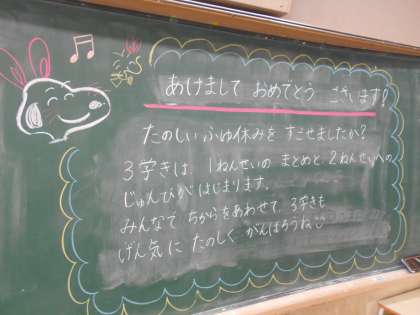 あけまして おめでとう ございます!
たのしいふゆ休みを すごせましたか?
3学きは、1ねんせいの まとめと 2ねんせいへの
じゅんびが はじまります。
みんなで ちからをあわせて、3学きも
げん気に たのしく がんばろうね